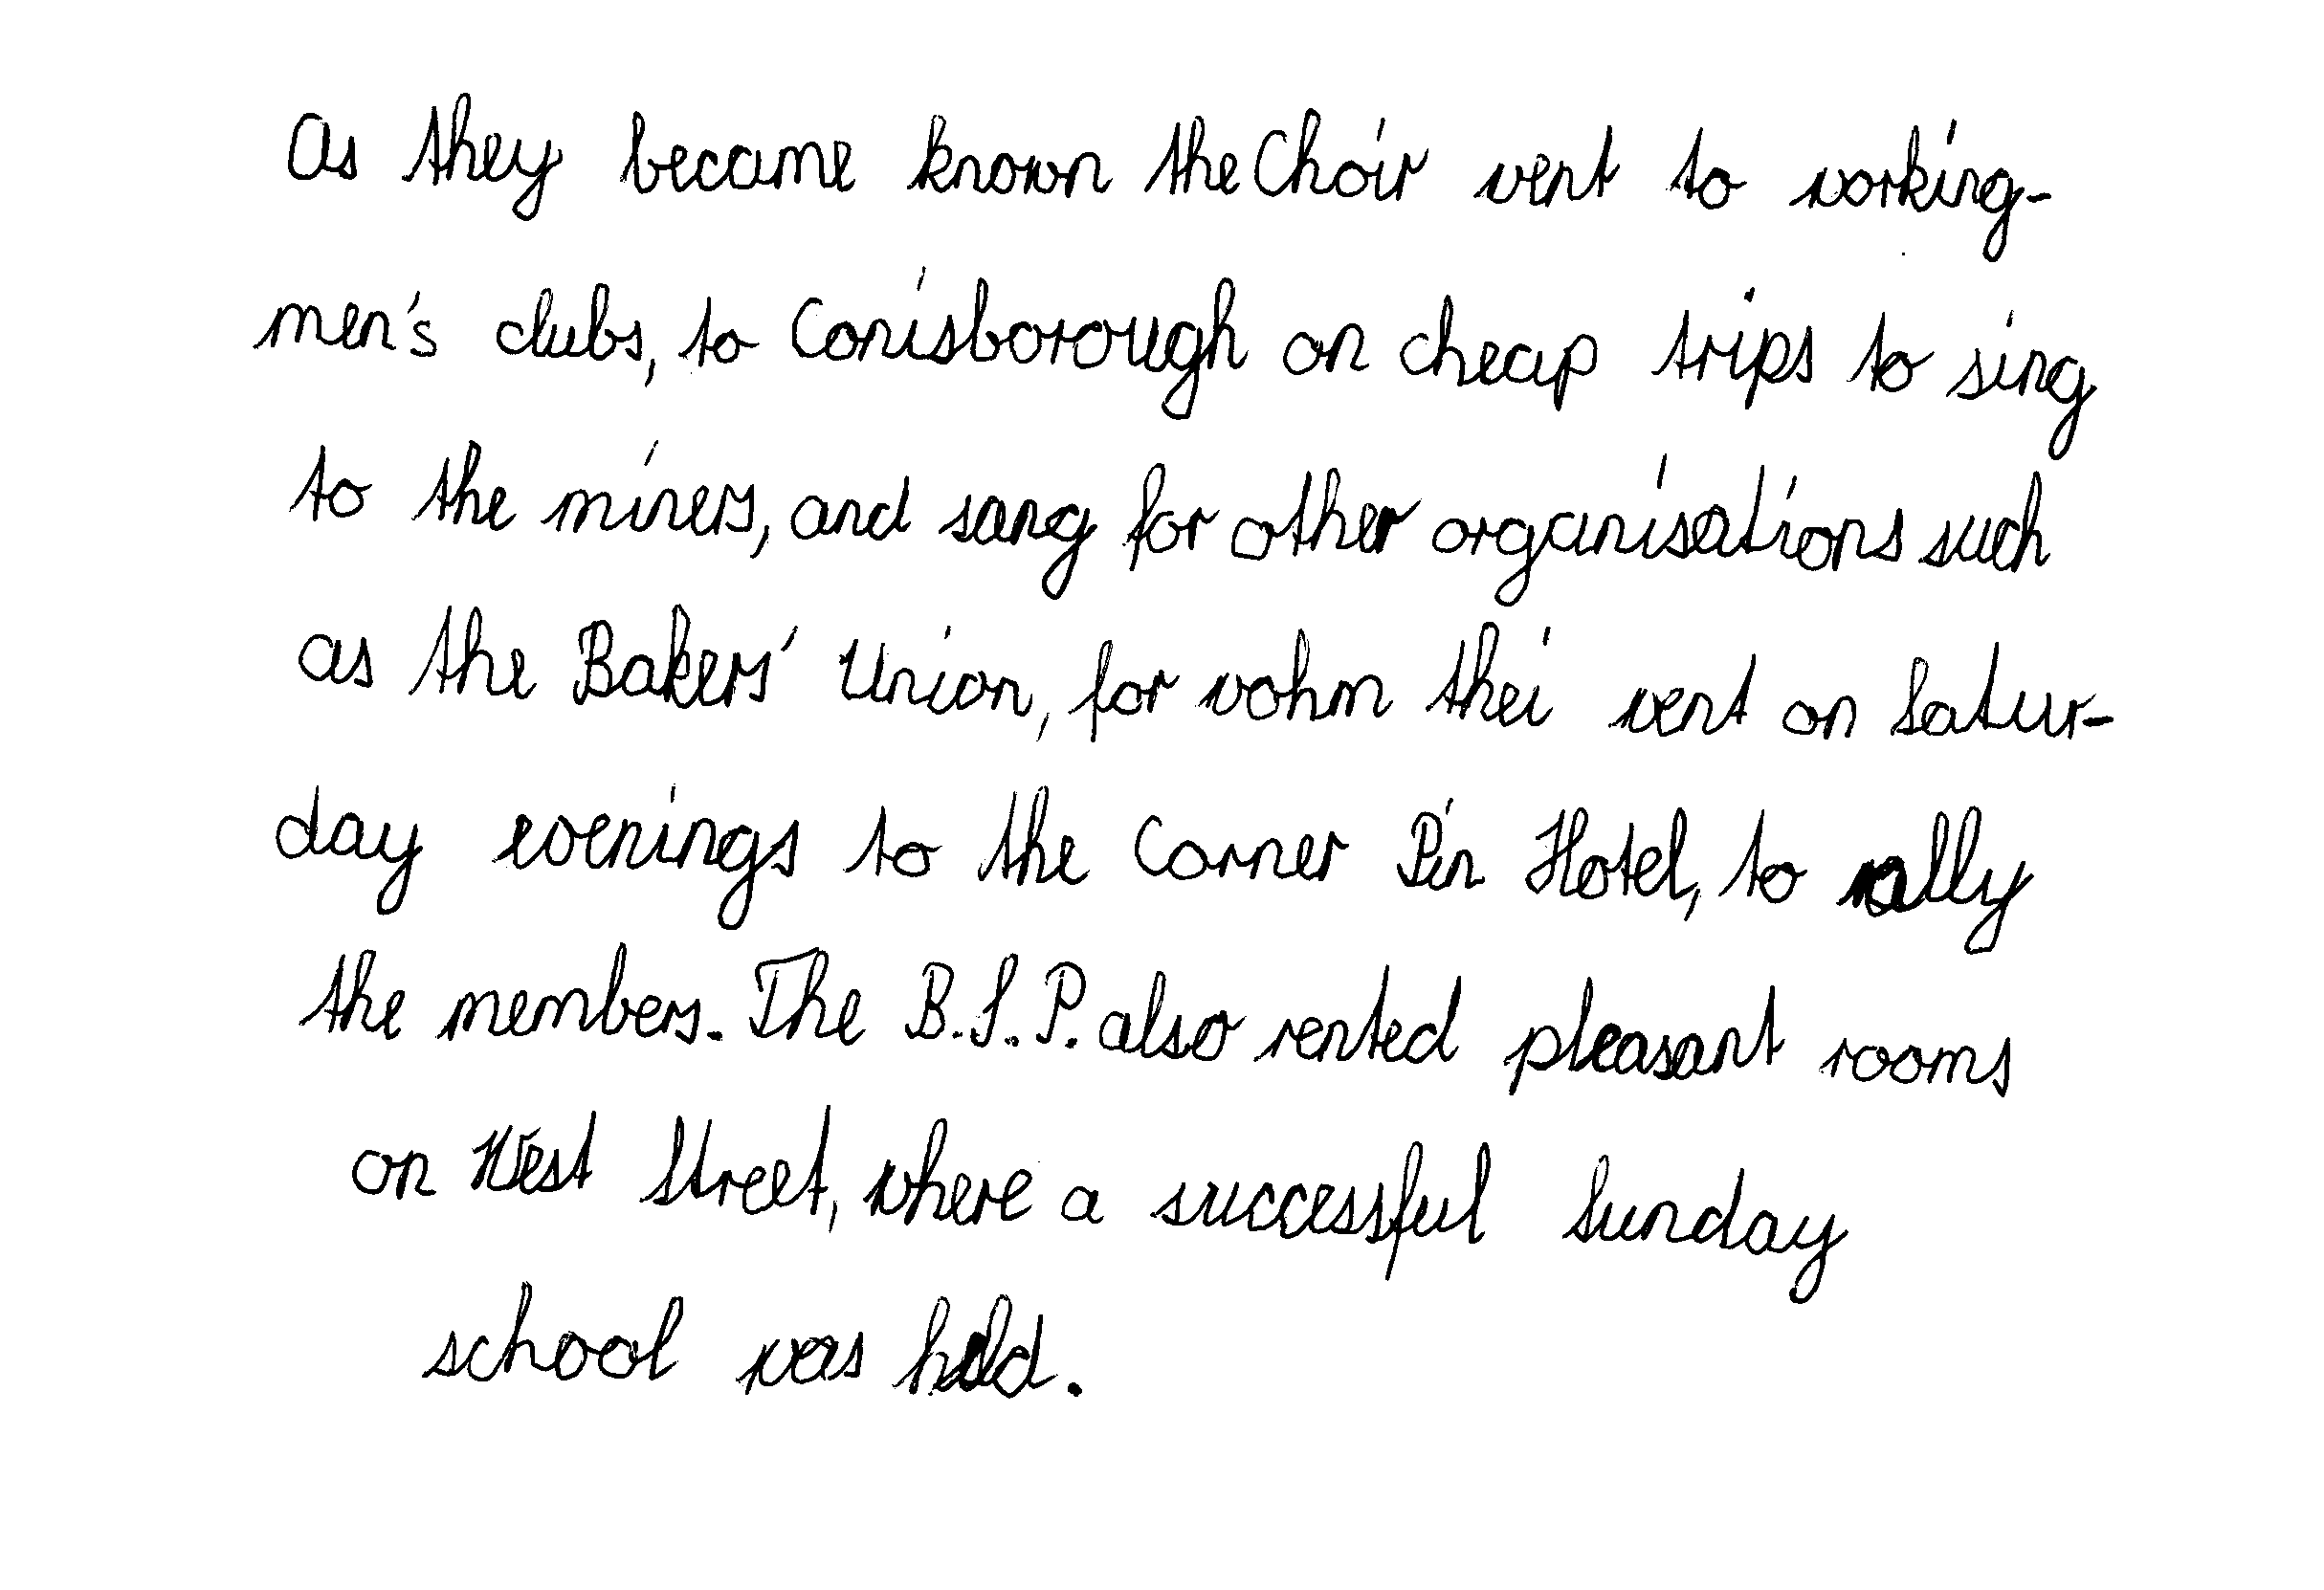 As they became known the Choir went to working-
men's clubs, to Conisborough on cheap trips to sing
to the miners, and sang for other organisations such
as the Bakers' Union, for wohm thei went on Satur-
day evenings to the Corner Pin Hotel, to rally
the members. The B.S.P. also rented pleasant rooms
on West Street, where a successful Sunday
school was held.